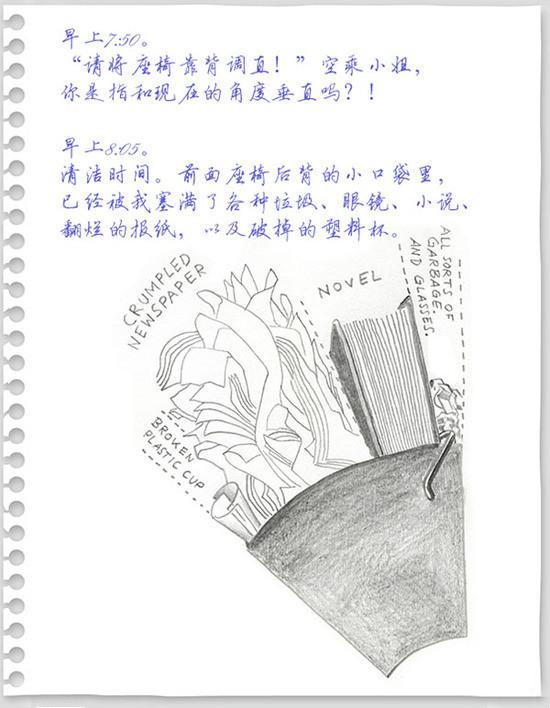 早上7:50。
“请将座椅靠背调直！”空乘小姐，
你是指和现在的角度垂直吗？！
早上8:05。
清洁时间。前面座椅后背的小口袋里，
已经被我塞满了各种垃圾、眼镜、小说、
翻烂的报纸，以及破掉的塑料杯。
CRUMPLED
NEWSPAPER
NOVEL
ALL SORTS OF
GARBAGE.
AND GLASSES.
BROKEN
PLASTIC CUP